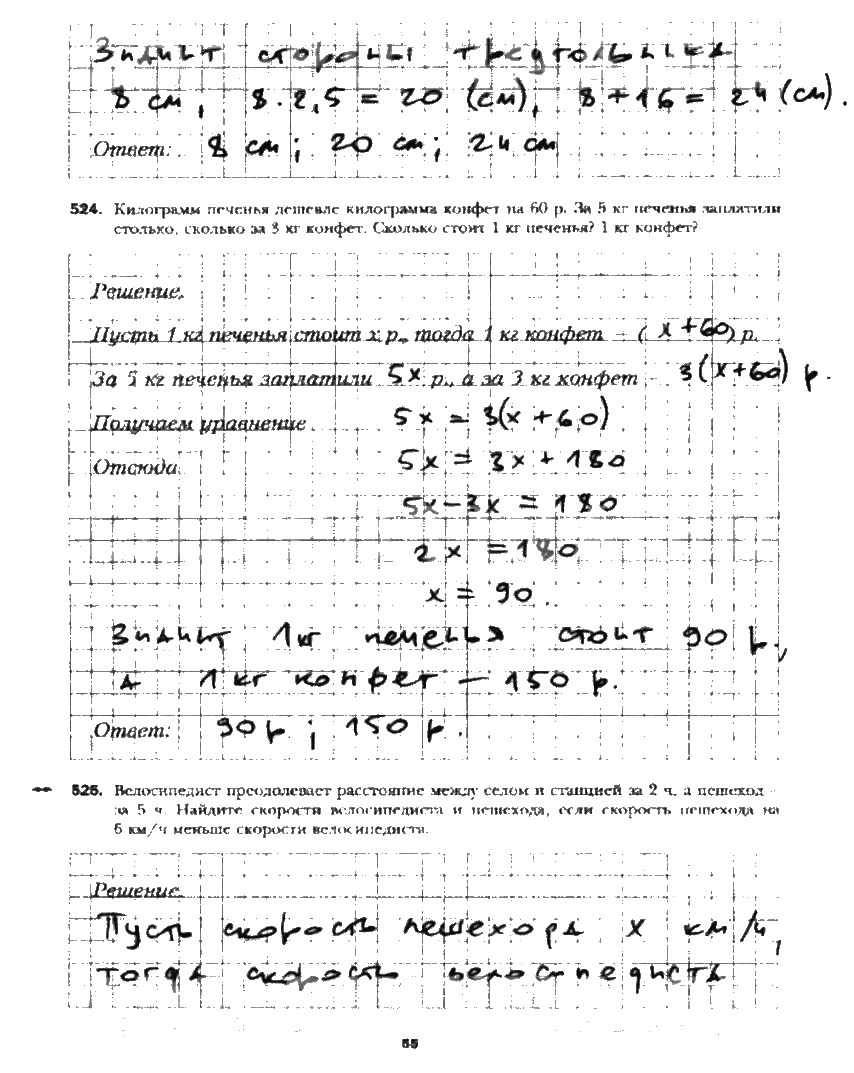 Значит стороны треугольника
8 см, 8 · 2,5 = 20 (см), 8 + 16 = 24 (см).
Ответ: 8 см; 20 см; 24 см
524. Килограмм печенья дешевле килограмма конфет на 60 р. За 5 кг печенья заплатили
столько, сколько за 3 кг конфет. Сколько стоит 1 кг печенья? 1 кг конфет?
Решение.
Пусть 1 кг печенья стоит x р., тогда 1 кг конфет – (x + 60) р.
За 5 кг печенья заплатили 5x р., а за 3 кг конфет – 3(x + 60) р.
Получаем уравнение 5x = 3(x + 60)
Отсюда 5x = 3x + 180
5x – 3x = 180
2x = 180
x = 90.
Значит 1 кг печенья стоит 90 р.,
а 1 кг конфет – 150 р.
Ответ: 90 р ; 150 р.
525. Велосипедист преодолевает расстояние между селом и станцией за 2 ч, а пешеход –
за 5 ч. Найдите скорости велосипедиста и пешехода, если скорость пешехода на
6 км/ч меньше скорости велосипедиста.
Решение.
Пусть скорость пешехода x км/ч,
тогда скорость велосипедиста
55